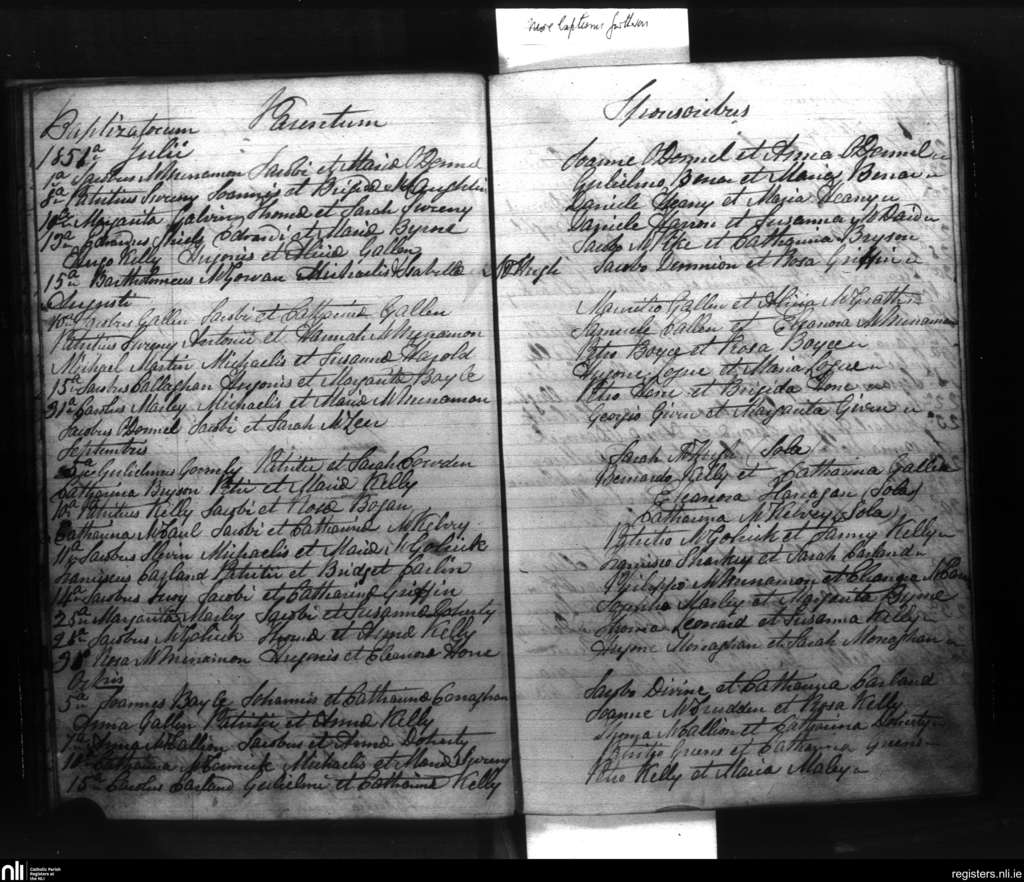 more baptisms further on
Baptizatorum Parentum
1851 Julii
1a Jacobus McMenamon Jacobi et Maria O'Donnel
8a Patritius Sweny Joannis et Brigida McLaughlin
10a Margarita Galvin Thoma et Sarah Sweeny
13a Edvardus Shiels Edvardi et Maria Byrne
Hugo Kelly Hugonis et Alicia Gallen
15a Bartholomeus McGowan Michaelis et Isabella McHugh
Augusti
10a Jacobus Gallen Jacobi et Catharina Gallen
Patritius Sweeny Antonii et Hannah McMenamon
Michael Martin Michaelis et Susanna Harold
15a Jacobus Callaghan Hugonis et Margarita Bayle
31a Carolus Marley Michaelis et Maria McMenamon
Jacobus O'Donnel Jacobi et Sarah
Septembris
5a Gulielmus Gormly Patritii et Sarah Cowden
Catharina Bryson Petri et Maria Kelly
10a Patritius Kelly Jacobi et Rosa Bogan
Catharina McCaul Jacobi et Catharina McKelvy
11a Jacobus Slevin Michaelis et Maria McGolrick
Franciscus Carland Patritii et Bridget Carlin
14a Jacobus Jacobi et Catharina Griffin
25a Margarita Marley Jacobi et Susanna Doherty
28a Jacobus McGolrick Thoma et Anna Kelly
30a Rosa McMenamon Hugonis et Eleanora Hone
Octbris
5a Joannes Bayle Johannis et Catharina Conaghan
Anna Gallen Patritii et Anna Kelly
7a Anna McCallion Jacobus et Anna Doherty
10a Catharina McCormick Michaelis et Maria Sweeny
15a Carolus Carland Gulielmi et Catharina Kelly
Sponsoribus
Joanne O'Donnel et Anna O'Donnel
Gulielmo Benar et Nancy Benar
Daniele Deany et Maria Deany
Daniele Harron et Susanna McDaid
Jacobo McGee et Catharina Bryson
Jacobo Dimnion et Rosa Griffin
Mauritio Gallen et Alicia McGrath
Samuele Callen et Eleanora McMenamon
Petro Boyce et Rosa Boyce
Hugone Logue et Maria Logue
Petro Hone et Brigida Hone
Georgio Given et Margarita Given
Sarah McHugh Sola
Bernardo Kelly et Catharina Gallen
Eleanora Flanagan Sola
Catharina McKelvey Sola
Patritio McGolrick et Fanny Kelly
Francisco Sharkey et Sarah Carland
Philippo McMenamon et Eleanora
Marley et Margarita Byrne
Thoma Leonard et Susanna Kelly
Hugone Monaghan et Sarah Monaghan
Jacobo Divine et Catharina Carland
Joanne McCrudden et Rosa Kelly
Thoma McCallion et Catharina Doherty
Patritio Guens et Catharina Guens
Petro Kelly et Maria Maley
nli Catholic Parish Registers at the NLI
registers.nli.ie